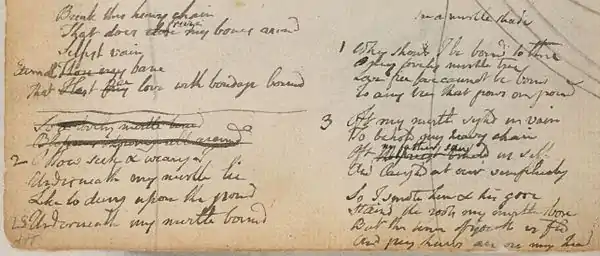 Break this heavy chain
That does close freeze my bones around
Selfish vain
Eternal Thou my bane
That Hast free love with bondage bound
To a lovely mirtle bound
Blossoms showring all around
2 O how sick & weary I
Underneath my mirtle lie
Like to dung upon the ground
Underneath my mirtle bound
in a mirtle shade
1 Why should I be bound to thee
O my lovely mirtle tree
Love free love cannot be bound
To any tree that grows on ground
3 Oft my mirtle sighd in vain
To behold my heavy chain
Oft my father saw us sigh
And laughd at our simplicity
So I smote him & his gore
Staind the roots my mirtle bore
But the time of youth is fled
And grey hairs are on my head